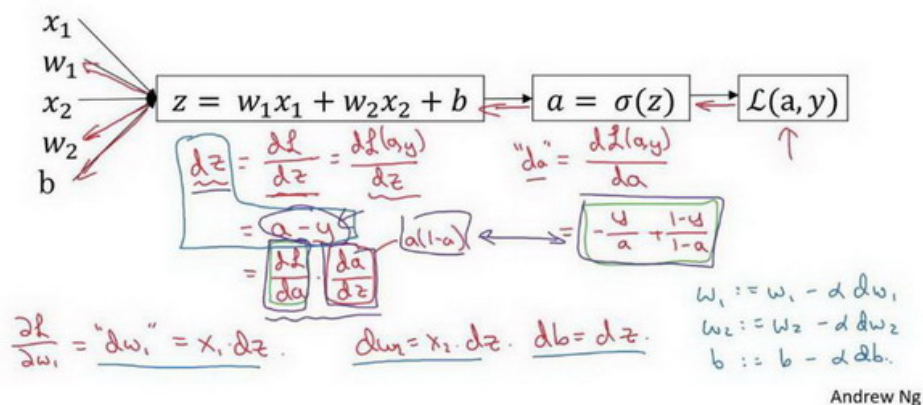 x₁
w₁
x₂
w₂
b
z = w₁x₁ + w₂x₂ + b
a = σ(z)
ℒ(a, y)
dz = dℒ/dz = dℒ(a,y)/dz
"da" = dℒ(a,y)/da
= a - y
= -y/a + (1-y)/(1-a)
= dℒ/da · da/dz
a(1-a)
∂ℒ/∂w₁ = "dw₁" = x₁·dz.
dw₂ = x₂·dz.
db = dz.
w₁ := w₁ - α dw₁
w₂ := w₂ - α dw₂
b := b - α db.
Andrew Ng